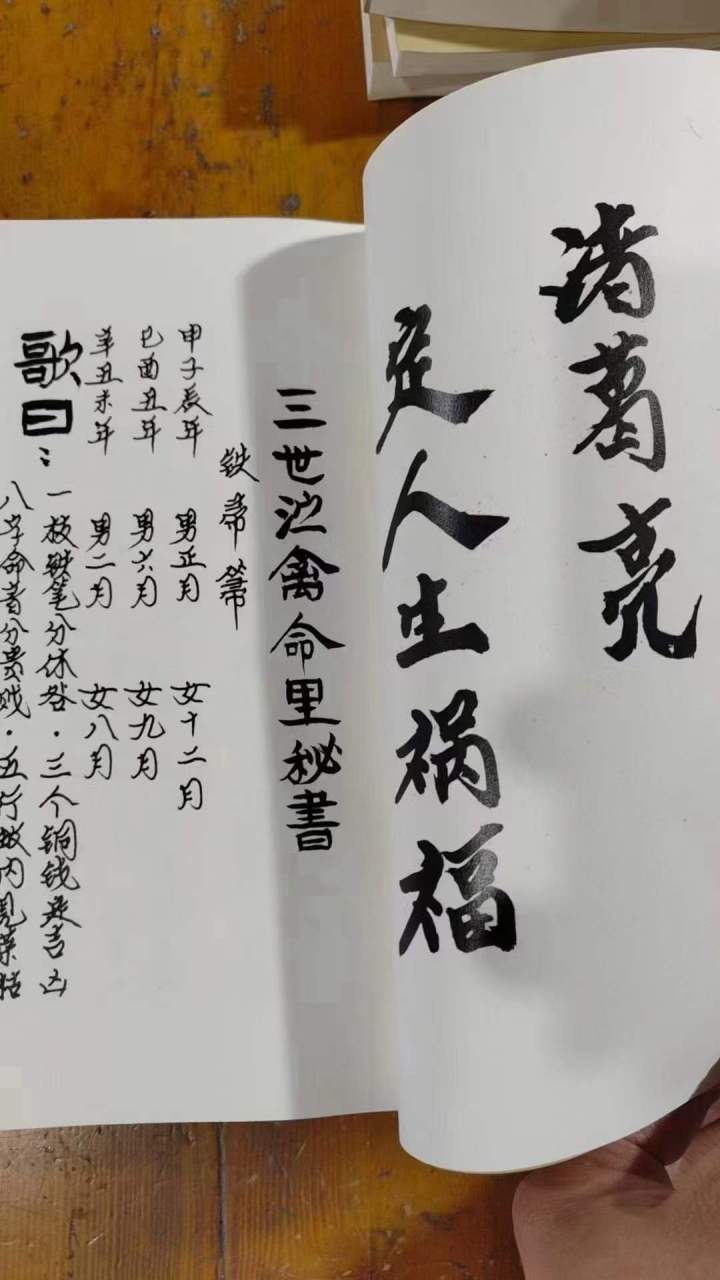 诸葛亮
定人生祸福
三世沄禽命里秘書
铁帚箒
甲子辰年 男正月 女十二月
巳酉丑年 男六月 女九月
辛丑未年 男二月 女八月
歌曰：
一枝铁笔分休咎．三个铜钱定吉凶
八字命书分贵贱．五行数内见荣枯